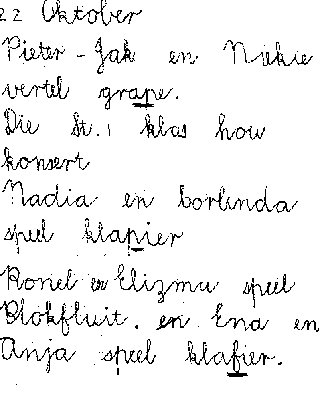 22 Oktober
Pieter-Jak en Niekie
vertel grape.
Die St. 1 klas hou
konsert
Nadia en borlinda
speel klapier
Ronel en Elizma speel
Blokfluit. en Ena en
Anja speel klafier.